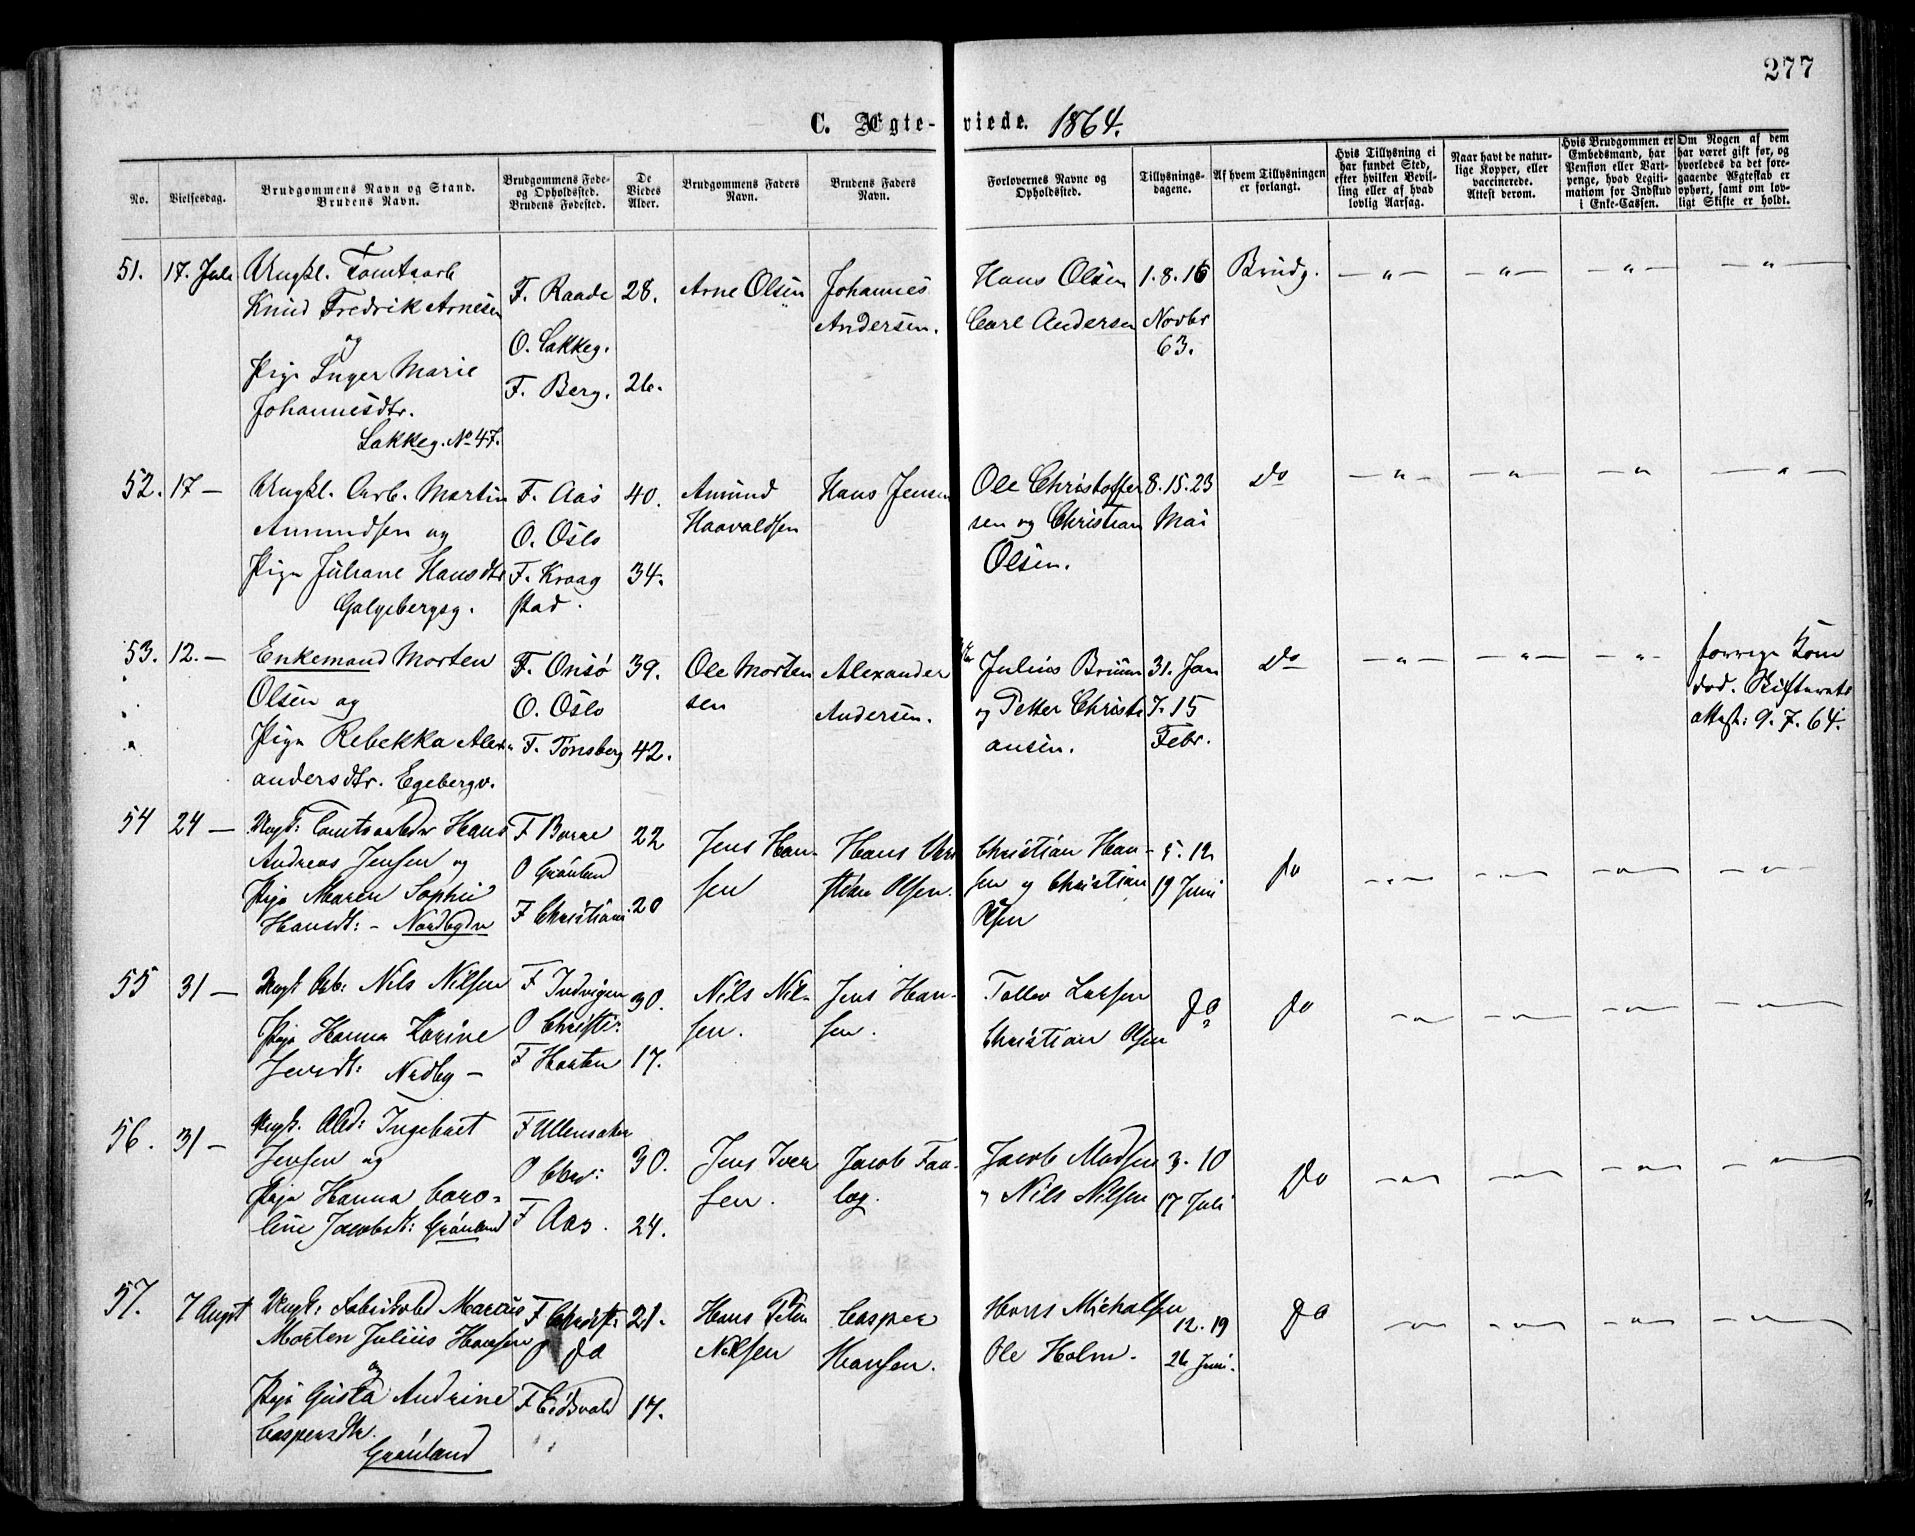 277
C. Ægte-viede. 1864.
No.
Vielsesdag.
Brudgommens Navn og Stand.
Brudens Navn.
Brudgommens Føde-
og Opholdssted.
Brudens Fødested.
De
Viedes
Alder.
Brudgommens Faders
Navn.
Brudens Faders
Navn.
Forlovernes Navne og
Opholdssted.
Tillysnings-
dagene.
Af hvem Tillysningen
er forlangt.
Hvis Tillysning ei
har fundet Sted,
efter hvilken Bevil-
ling eller af hvad
lovlig Aarsag.
Naar havt de natur-
lige Kopper, eller
vaccinerede.
Attest derom.
Hvis Brudgommen er
Embedsmand, har
Pension eller Vart-
penge, hvad Legiti-
mation for Indskud
i Enke-Cassen.
Om Nogen af dem
har været gift før, og
hvorledes da det fore-
gaaende Ægteskab er
ophørt, samt om lov-
ligt Skifte er holdt.
51. 17. Juli
Ungkl. Tomtearb
Knud Fredrik Arnesen
og
Pige Inger Marie
Johannesdtr.
Lakkeg. No 47.
F. Raade
O. Lakkeg.
F. Berg.
28.
26.
Arne Olsen
Johannes
Andersen.
Hans Olsen
Carl Andersen
1. 8. 15
Novbr
63.
Brudg.
— " —
— " —
— " —
— " —
52. 17 —
Ungkl. Arb. Martin
Amundsen og
Pige Juliane Hansdtr
Galgebergsg.
F. Aas
O. Oslo
F. Kraag
stad.
40.
34.
Amund
Haavaldsen
Hans Jensen
Ole Christoffer
sen og Christian
Olsen.
8. 15. 23
Mai
Do
— " —
— " —
— " —
— " —
53. 12. —
Enkemand Morten
Olsen og
Pige Rebekka Alex-
andersdtr. Egebergv.
F. Onsø
O. Oslo
F. Tønsberg
39.
42.
Ole Morten
sen
Alexander
Andersen.
Julius Bruun
og Petter Christi
ansen.
31. Jan
7. 15
Febr.
Do
— " —
— " —
— " —
forrige Kone
død. Skifterets
attest: 9. 7. 64.
54 24 —
Ungk: Tomtearbdr Hans
Andreas Jensen og
Pige Maren Sophie
Hansdt: - Nordbygdn
F Borne
O Grønland
F Christiania
22
20
Jens Han-
sen
Hans
Olsen.
Christian Han-
sen og Christian
Olsen
5. 12
19 Juni
Do
— " —
— " —
— " —
— " —
55 31 —
Ungk Arb: Nils Nilsen
Pige Hanna Karine
Jensdt: Nordby —
F
O Christia
F Horten
30.
17.
Nils Nil-
sen.
Jens Han-
sen.
Tollev Larsen
Christian Olsen
Do
Do
— " —
— " —
— " —
— " —
56. 31 —
Ungk. Arbd: Ingebret
Jensen og
Pige Hanna Caro-
line Jacobsdt: Grønland
F Ullensaker
O
F Aas.
30.
24.
Jens Iver
sen.
Jacob Fau-
Jacob Madsen
og Nils Nilsen
3. 10
17 Juli
Do
— " —
— " —
— " —
— " —
57. 7 Augst
Ungk: Fabrikarbd Marius
Morten Julius Hansen
og
Pige Gusta Andrine
Caspersdtr.
Grønland
F Christ:
O Do
F Eidsvold
21.
17.
Hans Peter
Nilsen
Casper
Hansen.
Hans Michalsen
Ole Holm.
12. 19
26 Juni.
Do
— " —
— " —
— " —
— " —